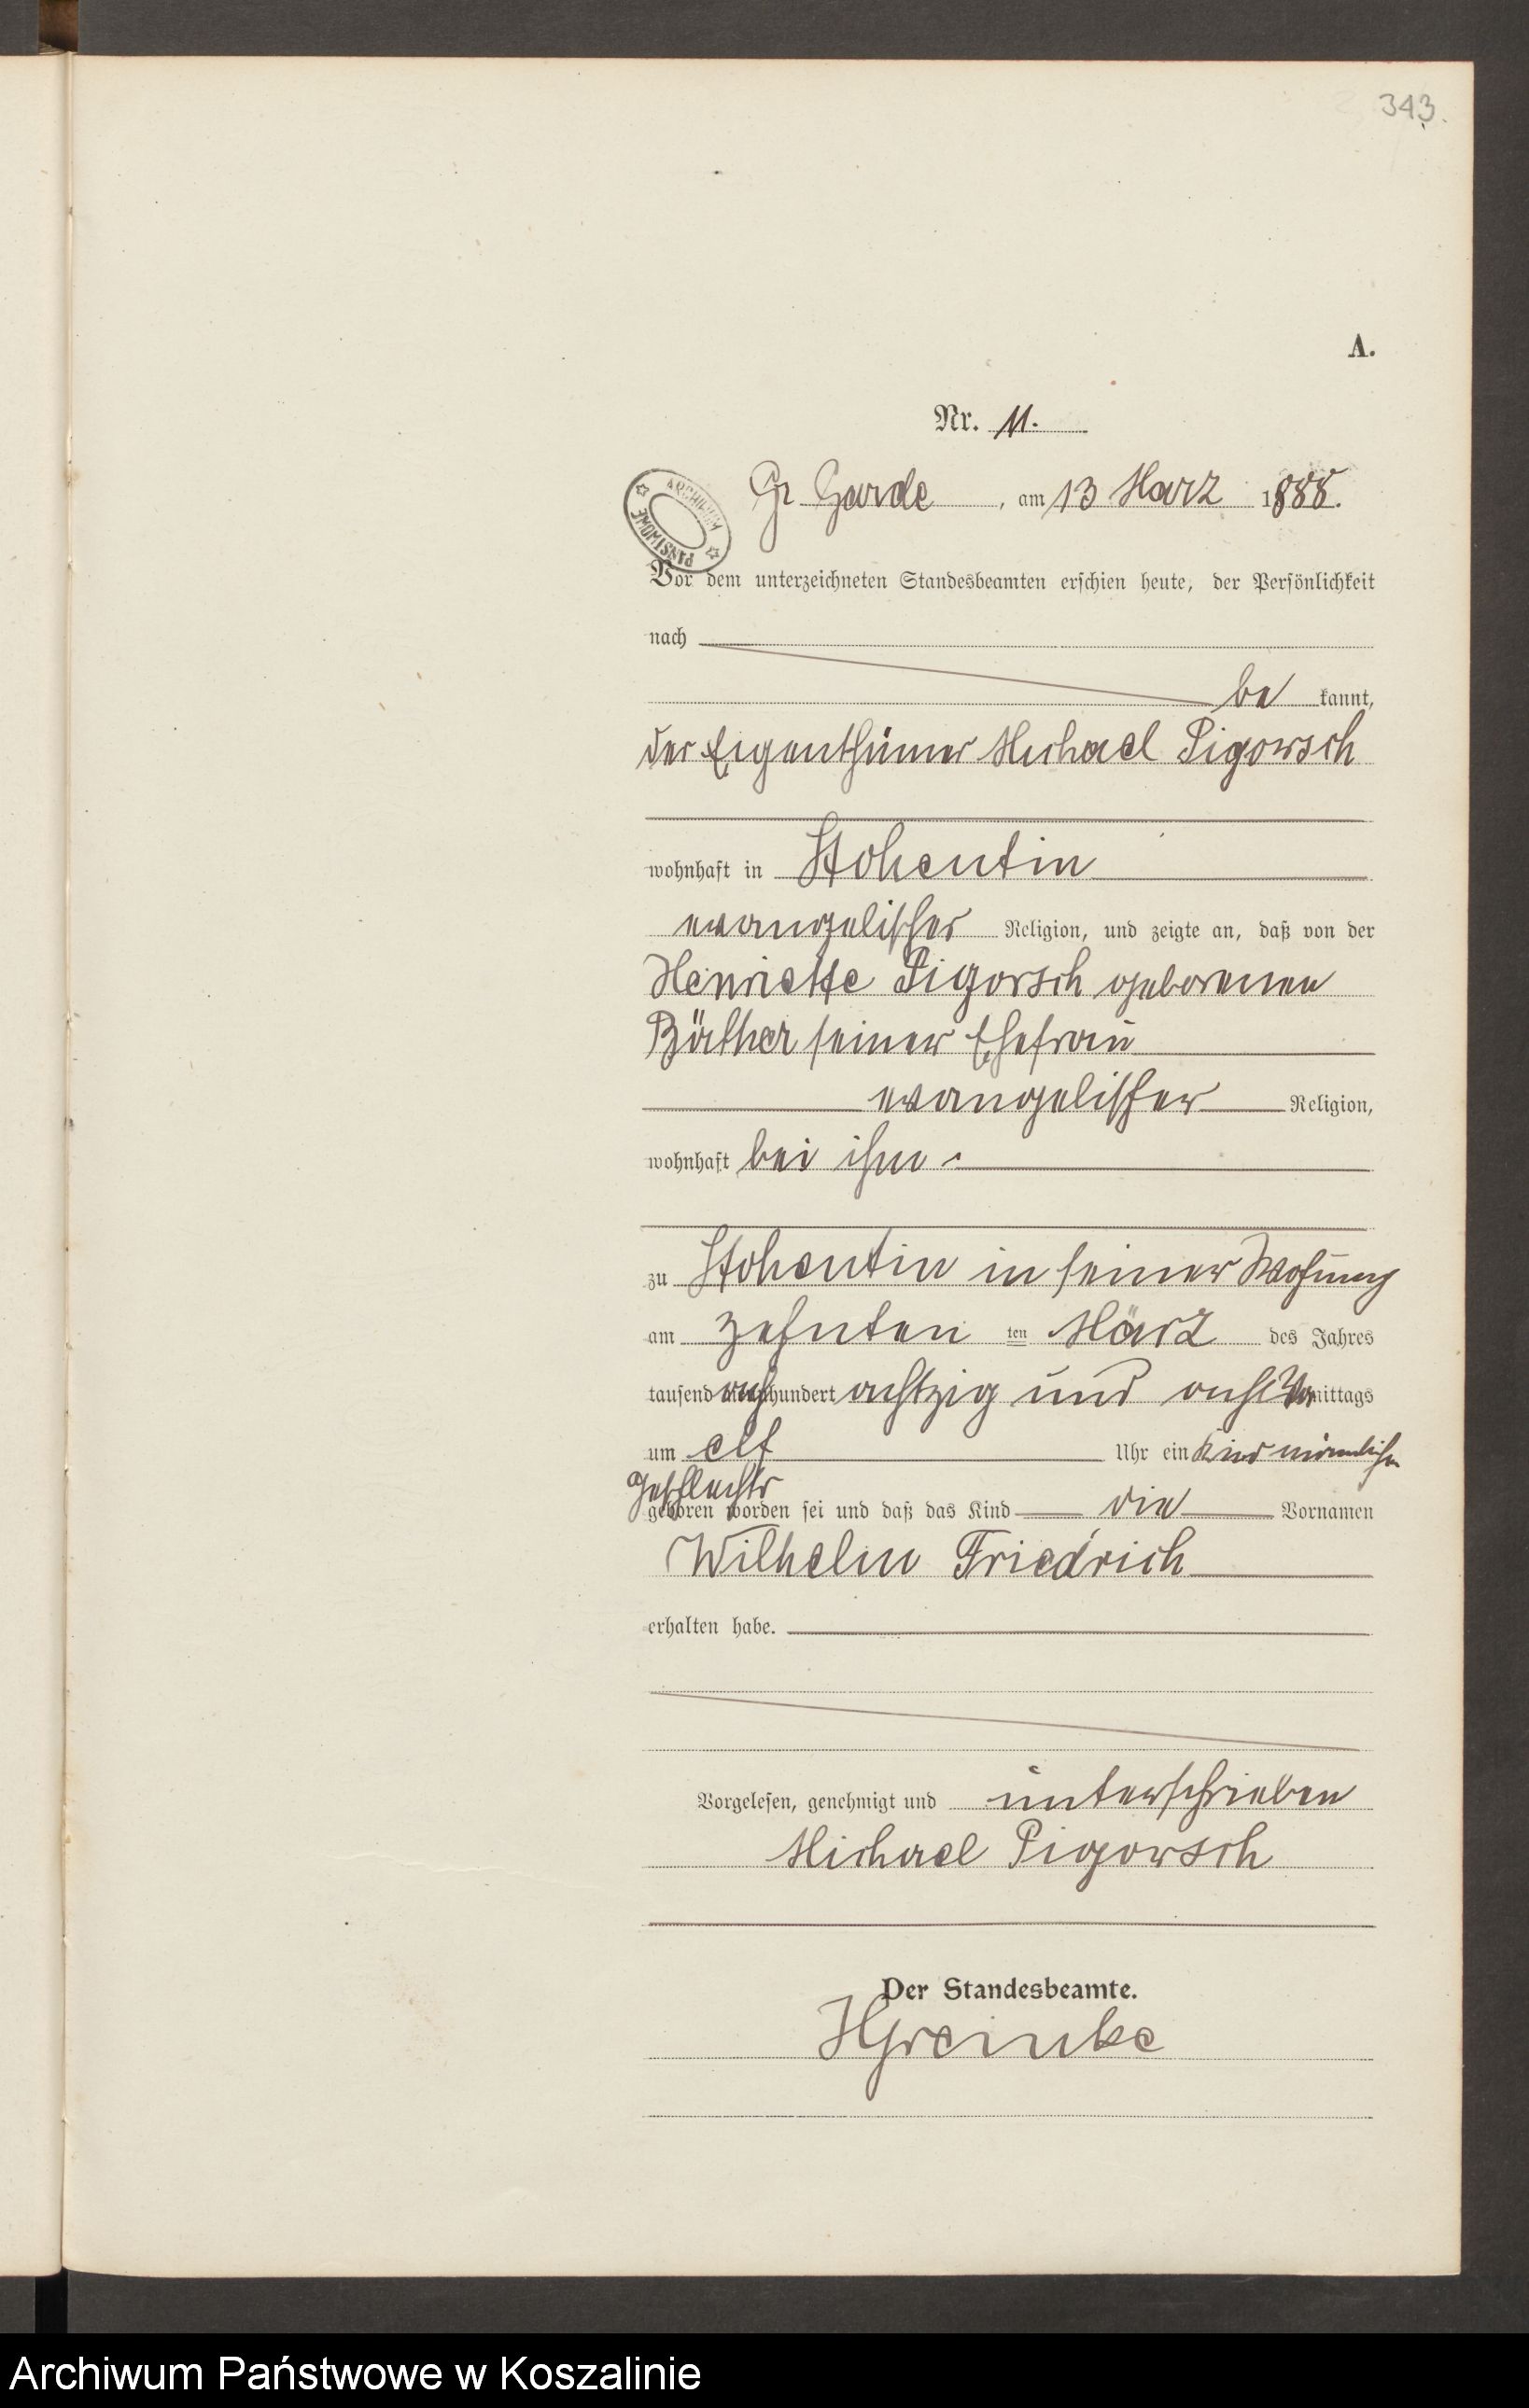 343.
A.
Nr. 11.
ARCHIWUM PAŃSTWOWE
Gr. Garde, am 13 Marz 1888.
Vor dem unterzeichneten Standesbeamten erschien heute, der Persönlichkeit
nach
be kannt,
der Eigenthümer Michael Pigorsch
wohnhaft in Stohentin
evangelischer Religion, und zeigte an, daß von der
Henriette Pigorsch geborenen
Bäther seiner Ehefrau
evangelischer Religion,
wohnhaft bei ihm
zu Stohentin in seiner Wohnung
am zehnten ten März des Jahres
tausend acht hundert achtzig und acht Vormittags
um elf Uhr ein Kind männlichen
Geschlechts
geboren worden sei und daß das Kind die Vornamen
Wilhelm Friedrich
erhalten habe.
Vorgelesen, genehmigt und unterschrieben
Michael Pigorsch
Der Standesbeamte.
HGreinke
Archiwum Państwowe w Koszalinie